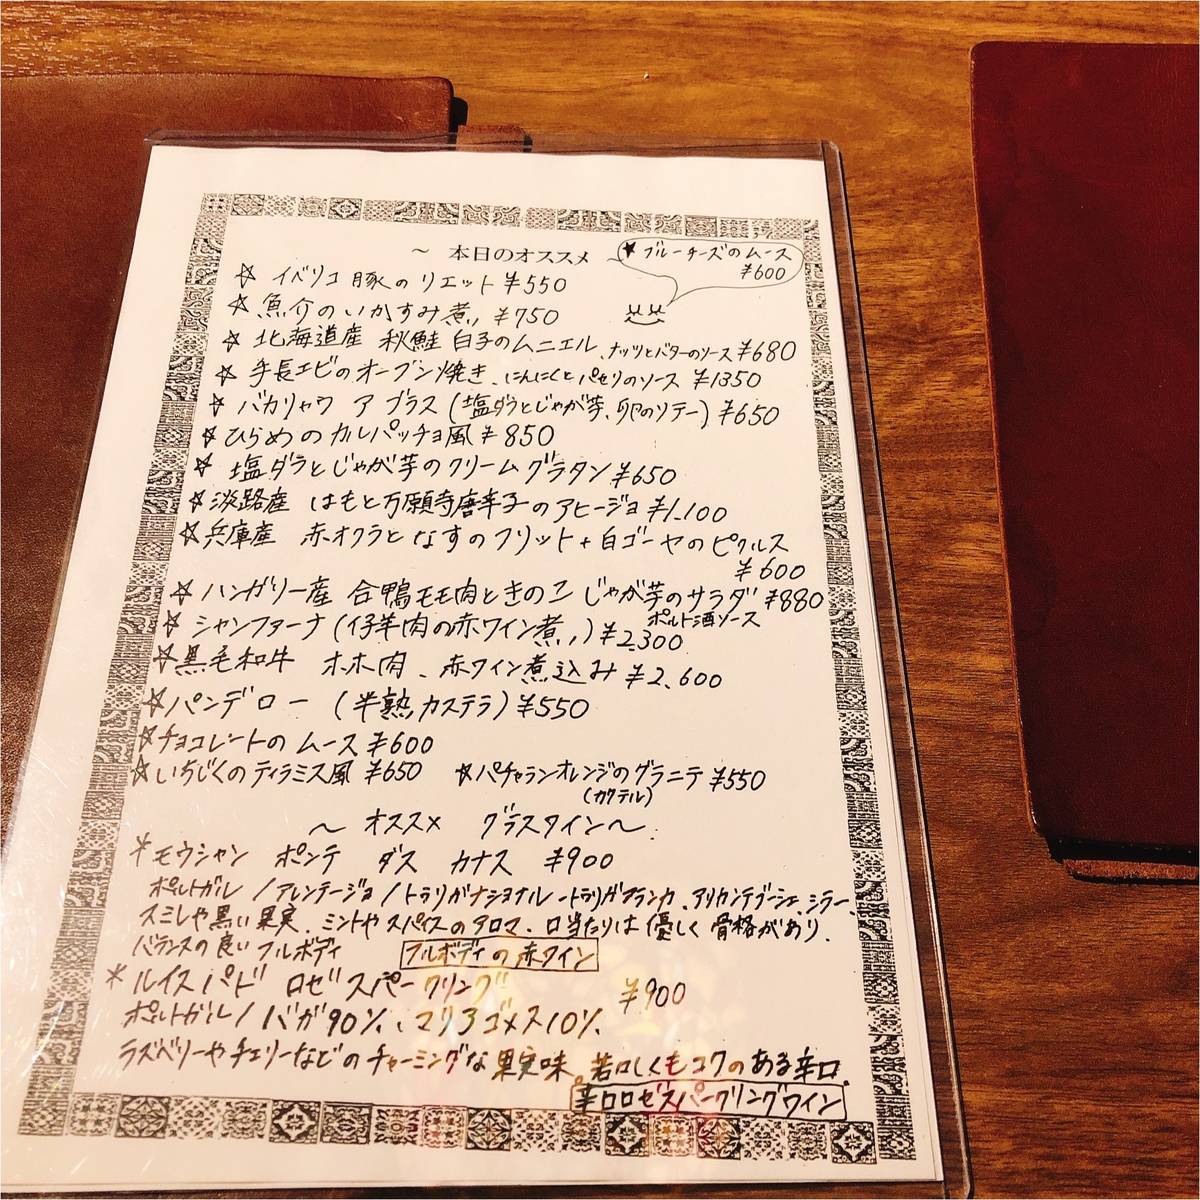 ～ 本日のオススメ
★ ブルーチーズのムース
¥600
☆ イベリコ豚のリエット ¥550
☆ 魚介のいかすみ煮 ¥750
☆ 北海道産 秋鮭白子のムニエル、ナッツとバターのソース ¥680
☆ 手長エビのオーブン焼き、にんにくとパセリのソース ¥1350
☆ バカリャウ ア ブラス(塩ダラとじゃが芋、卵のソテー) ¥650
☆ ひらめのカルパッチョ風 ¥850
☆ 塩ダラとじゃが芋のクリームグラタン ¥650
☆ 淡路産 はもと万願寺唐辛子のアヒージョ ¥1,100
☆ 兵庫産 赤オクラとなすのフリット+白ゴーヤのピクルス
¥600
☆ ハンガリー産 合鴨モモ肉ときのこ じゃが芋のサラダ ¥880
ポルト酒ソース
☆ シャンファーナ(仔羊肉の赤ワイン煮) ¥2,300
☆ 黒毛和牛 ホホ肉、赤ワイン煮込み ¥2,600
☆ パンデロー (半熟カステラ) ¥550
☆ チョコレートのムース ¥600
☆ いちじくのティラミス風 ¥650 ☆ パチャランオレンジのグラニテ ¥550
(カクテル)
～ オススメ グラスワイン～
* モウシャン ポンテ ダス カナス ¥900
ポルトガル/アレンテージョ/トゥリガナショナル、トゥリガフランカ、アリカンテブーシェ、シラー、
スミレや黒い果実、ミントやスパイスのアロマ、口当たりは優しく骨格があり、
バランスの良いフルボディ フルボディの赤ワイン
* ルイスパト ロゼスパークリング ¥900
ポルトガル/バガ90%、マリアゴメス10%
ラズベリーやチェリーなどのチャーミングな果実味。若々しくもコクのある辛口。
辛口ロゼスパークリングワイン